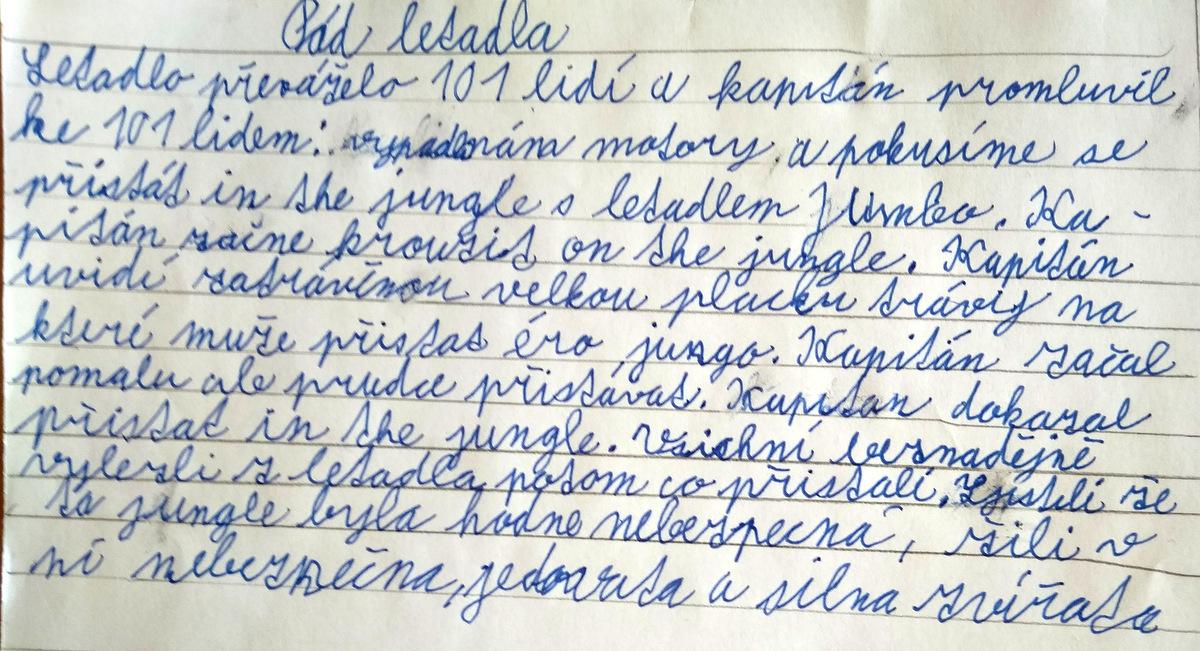 Pád letadla
Letadlo převáželo 101 lidí a kapitán promluvil
ke 101 lidem: vypadnám motory a pokusíme se
přistát in the jungle s letadlem Jumbo. Ka-
pitán začne kroužit on the jungle. Kapitán
uvidí zatráv́inou velkou placku trávy na
které muže přistat éro jungo. Kapitán začal
pomalu ale prudce přistávat. Kapitan dokazal
přistat in the jungle. Vzichní beznadějně
vylezli z letadla potom co přistali. Zjistili že
ta jungle byla hodně nebezpecná, žili v
ní nebezpěčna, jedovata a silna zvířata